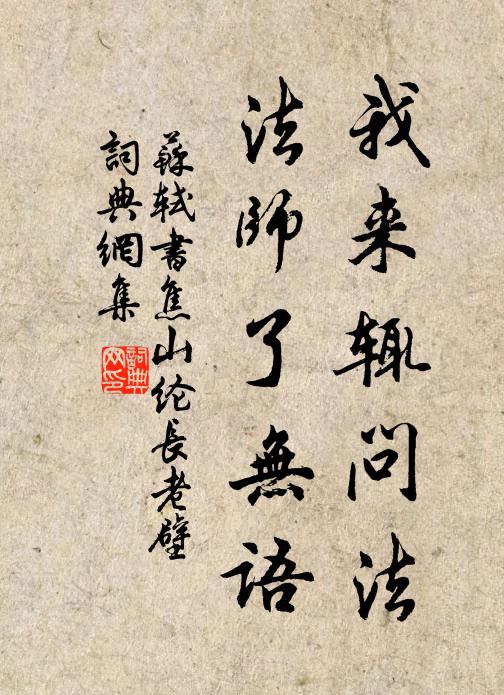 我来辄问法
法師了無語
蘇軾書焦山纶長老壁
詞典網集
詞典
网印